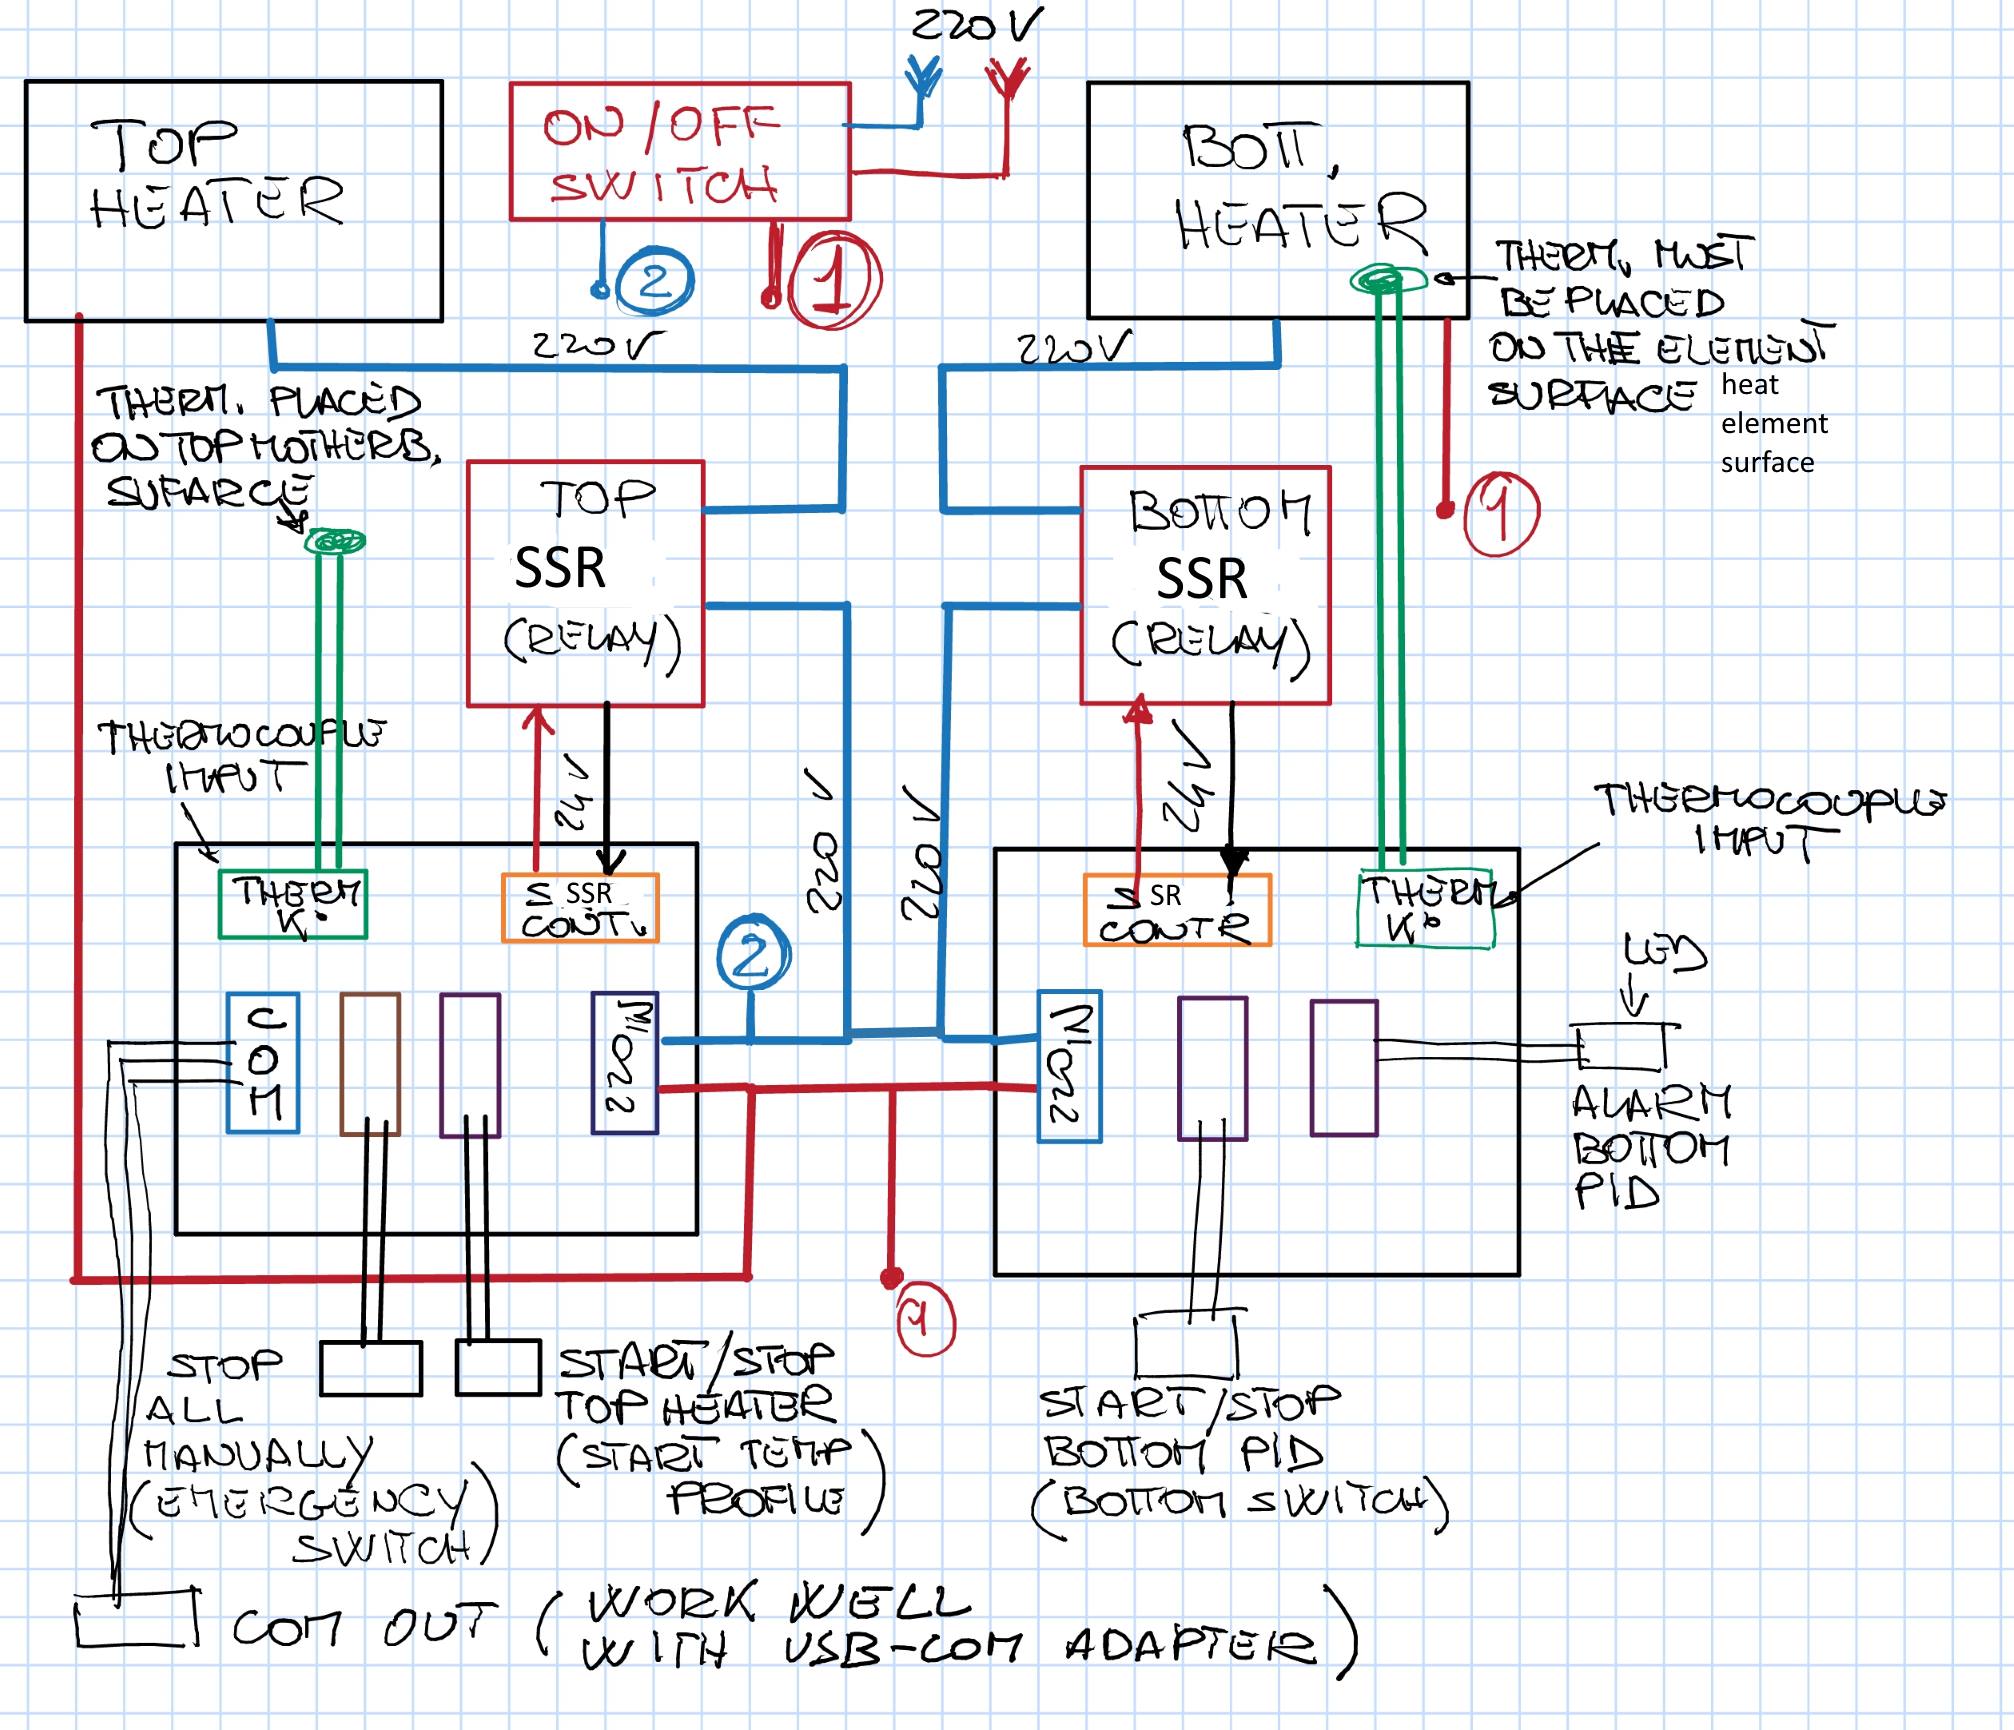 220V
TOP
HEATER
ON/OFF
SWITCH
2
1
BOTT.
HEATER
THERM. MUST
BE PLACED
ON THE ELEMENT
SURFACE
heat
element
surface
220V
220V
THERM. PLACED
ON TOP MOTHERB.
SUFARCE
TOP
SSR
(RELAY)
BOTTOM
SSR
(RELAY)
1
THERMOCOUPLE
IMPUT
24V
220V
220V
24V
THERMOCOUPLE
IMPUT
THERM
K:
S SSR
CONT.
S SR
CONTR
THERM
K:
2
LED
COM
220IN
220IN
ALARM
BOTTOM
PID
1
STOP
ALL
MANUALLY
(EMERGENCY
SWITCH)
START/STOP
TOP HEATER
(START TEMP
PROFILE)
START/STOP
BOTTOM PID
(BOTTOM SWITCH)
COM OUT (WORK WELL
WITH USB-COM ADAPTER)